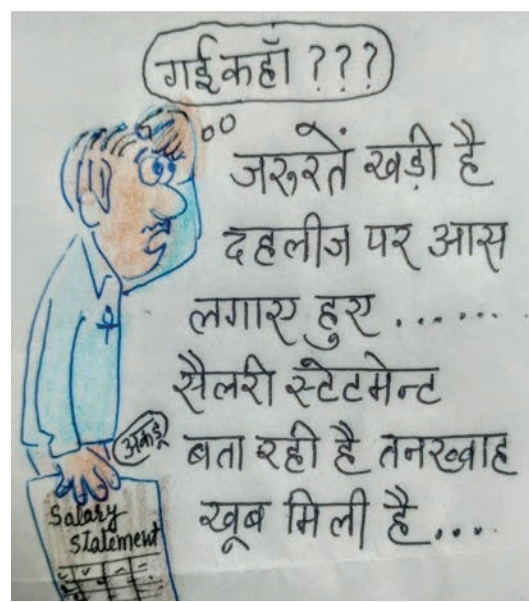 गई कहाँ ???
जरुरतें खड़ी है
दहलीज पर आस
लगाए हुए .......
सैलरी स्टेटमेन्ट
बता रही है तनख्वाह
खूब मिली है....
Salary
Statement